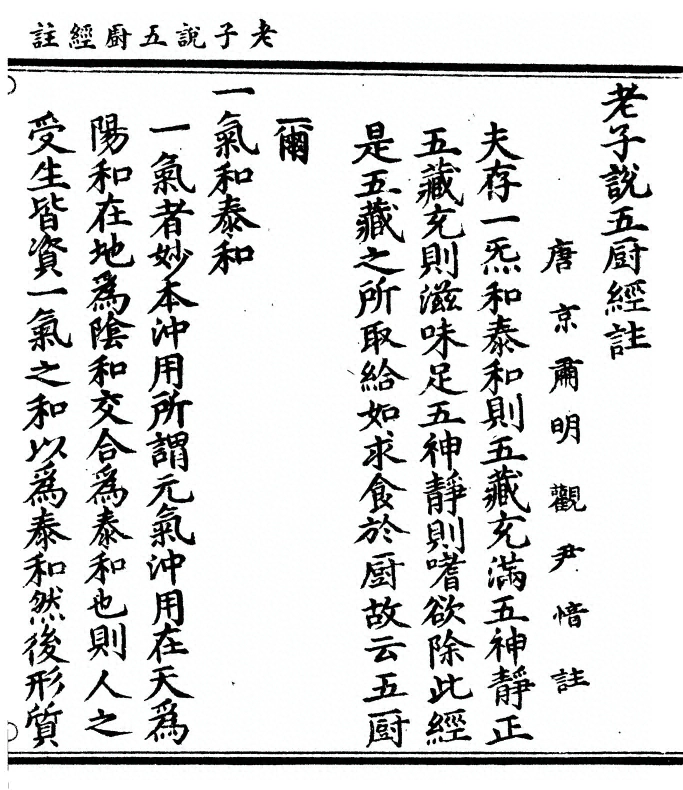 老子說五厨經註
老子說五厨經註
唐京肅明觀尹愔註
夫存一炁和泰和則五藏充滿五神靜正
五藏充則滋味足五神靜則嗜欲除此經
是五藏之所取給如求食於厨故云五厨
爾
一氣和泰和
一氣者妙本沖用所謂元氣沖用在天為
陽和在地為陰和交合為泰和也則人之
受生皆資一氣之和以為泰和然後形質